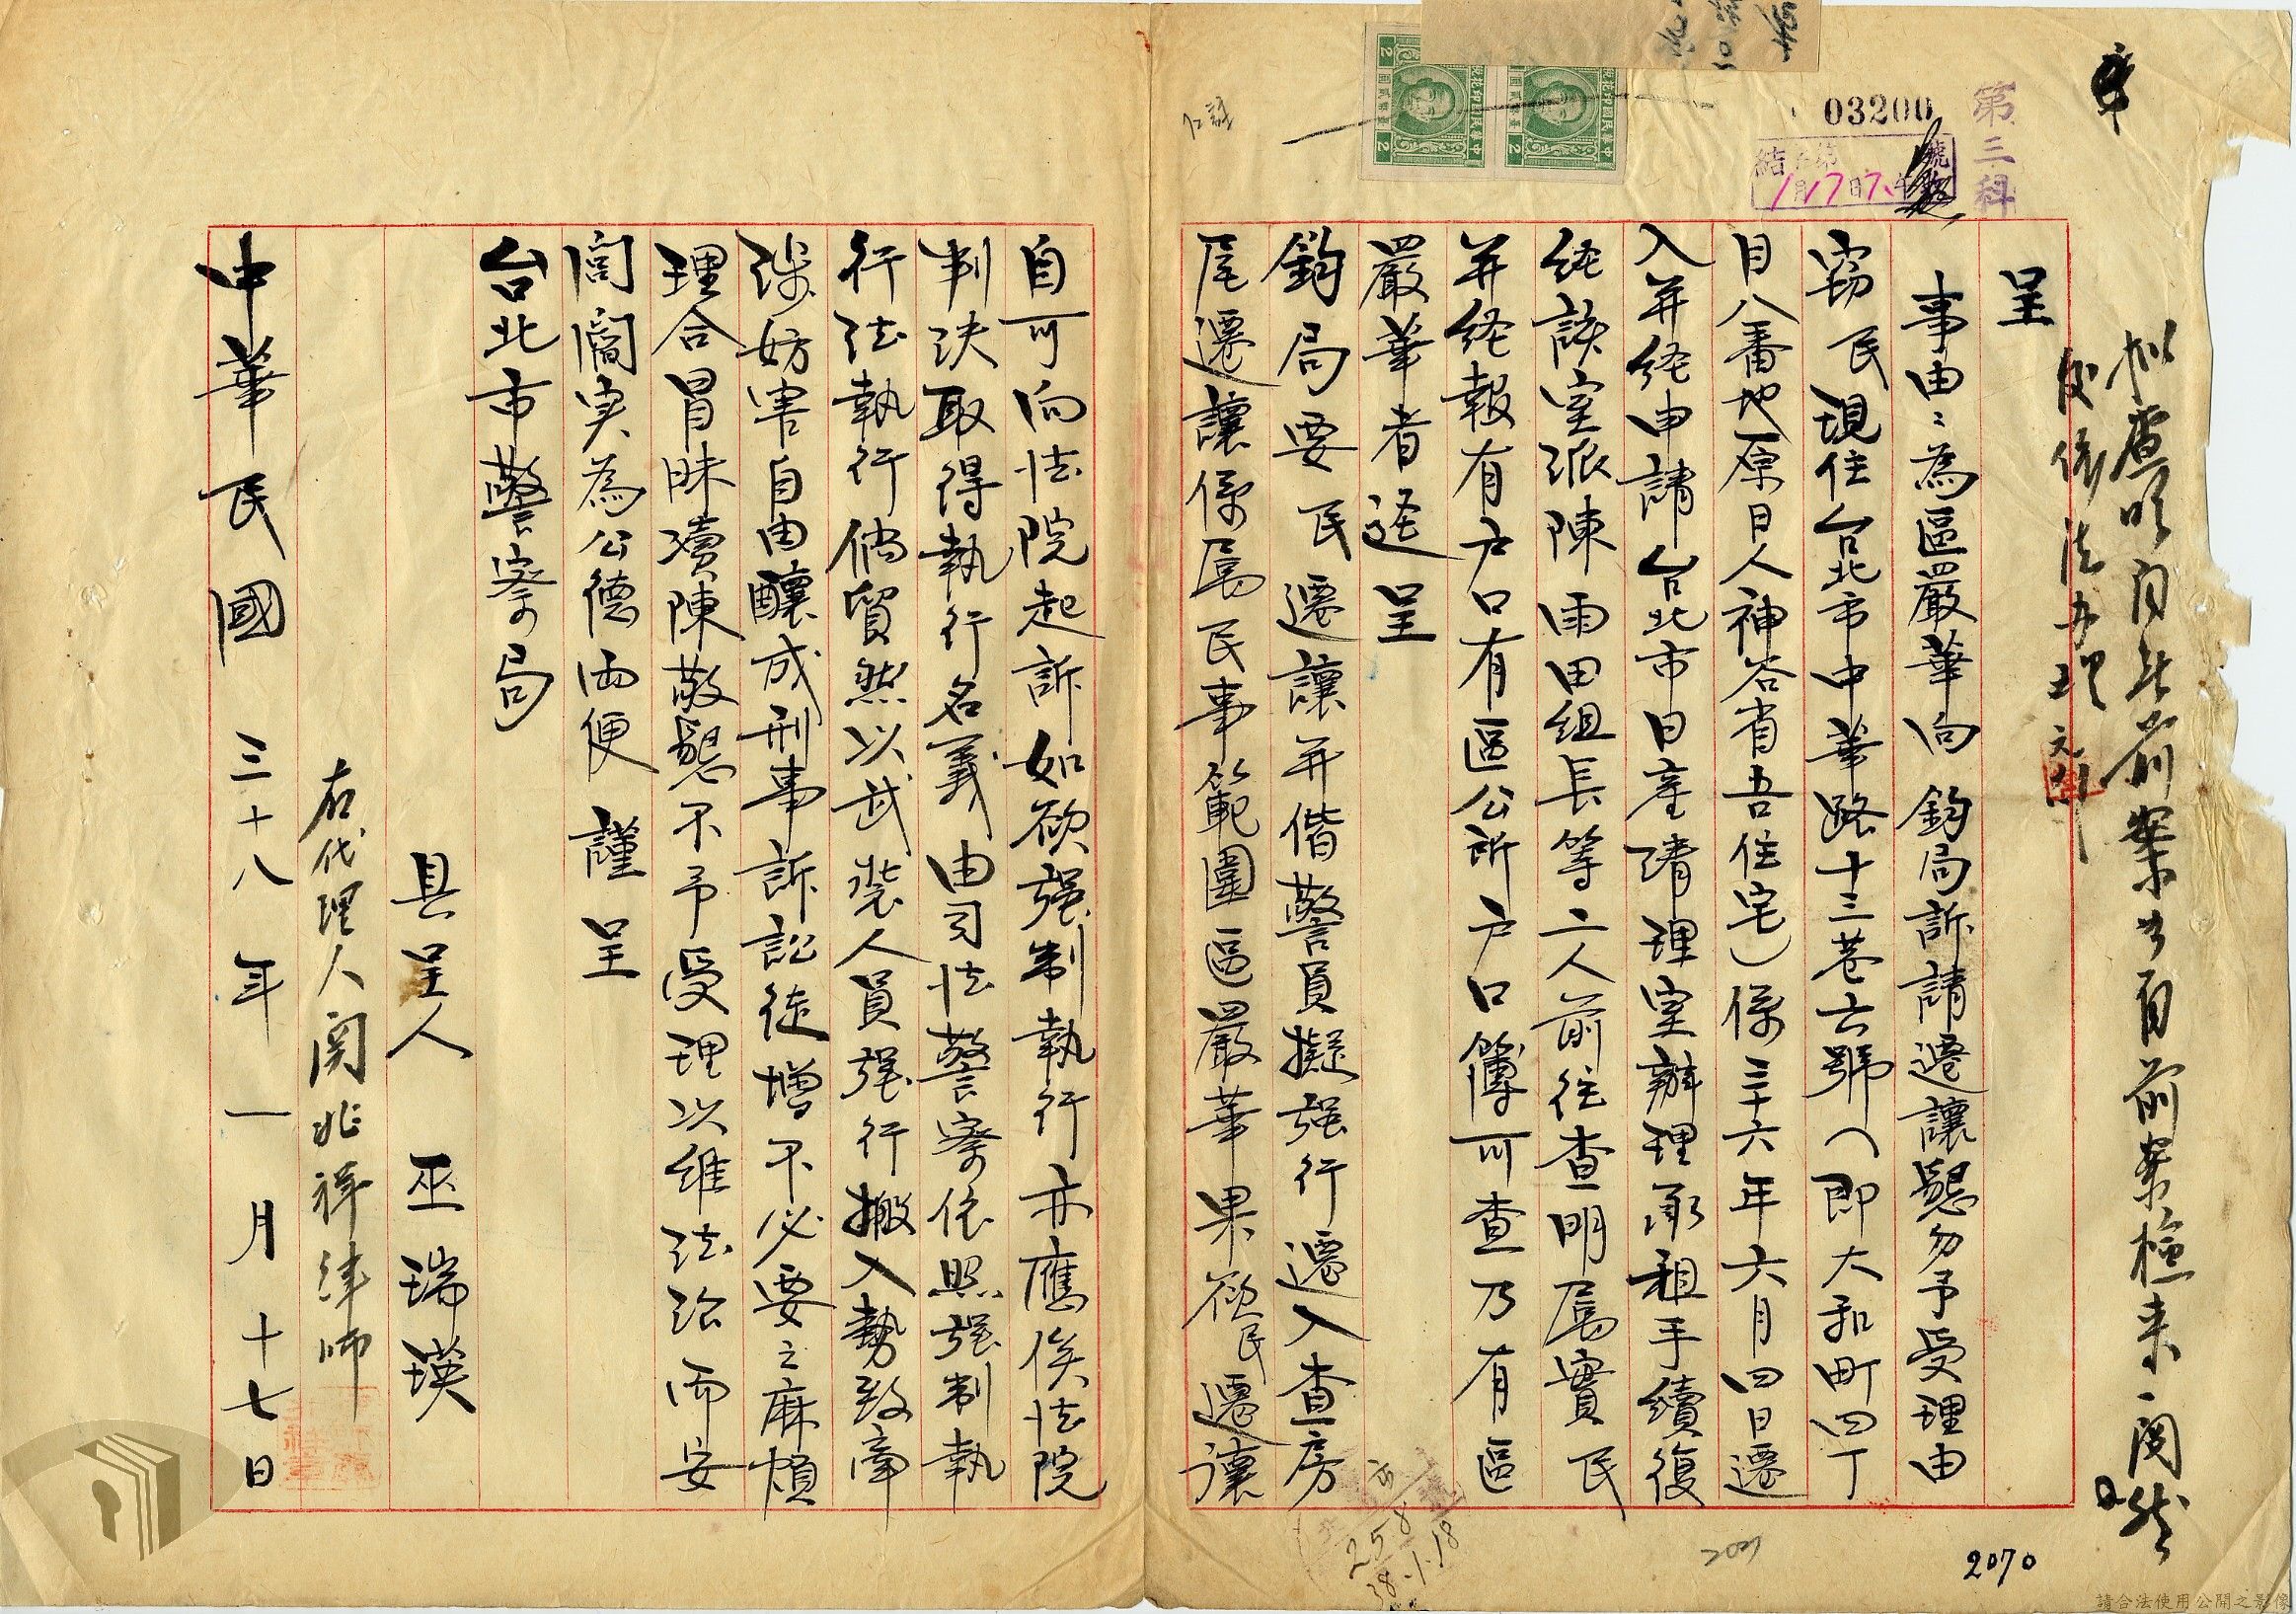 第三科
03200
呈
事由：為區嚴華向 鈞局訴請遷讓懇勿予受理由
竊民現住台北市中華路十三巷六號（即大和町四丁
目八番地原日人神谷省吾住宅）係三十六年六月四日遷
入并經申請台北市日產清理室辦理承租手續復
經該室派陳雨田組長等二人前往查明屬實民
并經報有戶口有區公所戶口簿可查乃有區
嚴華者逕呈
鈞局要民遷讓并偕警員擬强行遷入查房
屋遷讓係屬民事範圍區嚴華果欲民遷讓
自可向法院起訴如欲强制執行亦應俟法院
判決取得執行名義由司法警察依照强制執
行法執行倘貿然以武裝人員强行搬入勢致牽
涉妨害自由釀成刑事訴訟徒增不必要之麻煩
理合冒昧瀆陳敬懇不予受理以維法治而安
閭閻实為公德兩便 謹 呈
台北市警察局
具呈人 巫瑞瑛
右代理人 関兆祥律師
中華民國三十八年一月十七日
258
38.1.18
2070
請合法使用公開之影像